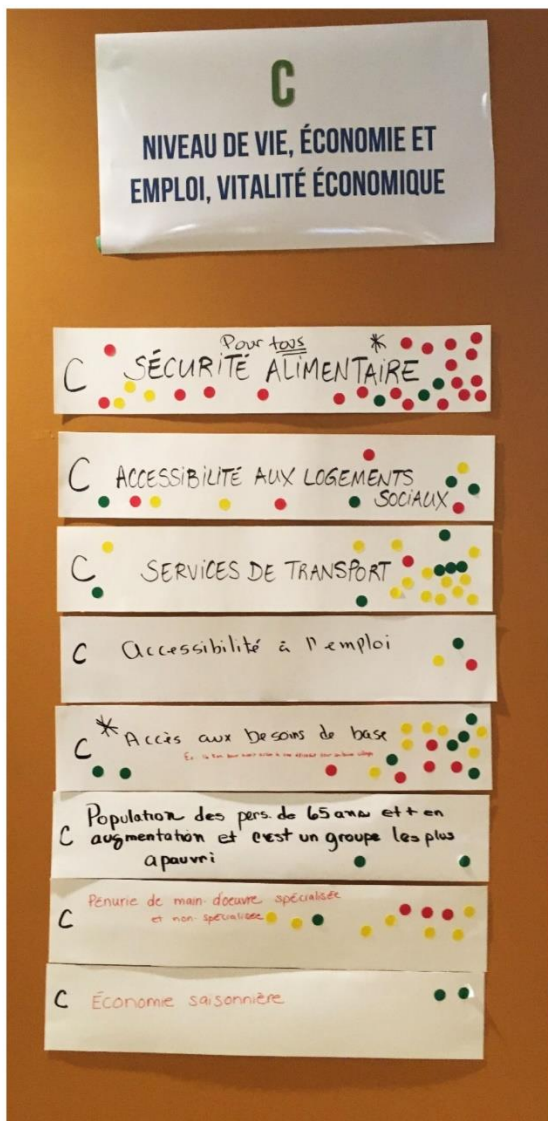 C
NIVEAU DE VIE, ÉCONOMIE ET
EMPLOI, VITALITÉ ÉCONOMIQUE
Pour tous *
C SÉCURITÉ ALIMENTAIRE
C ACCESSIBILITÉ AUX LOGEMENTS
SOCIAUX
C SERVICES DE TRANSPORT
C Accessibilité à l'emploi
C * Accès aux besoins de base
Ex:
C Population des pers. de 65 ans et + en
augmentation et c'est un groupe les plus
apauvri
C Pénurie de main-d'oeuvre spécialisée
et non-spécialisée
C Économie saisonnière